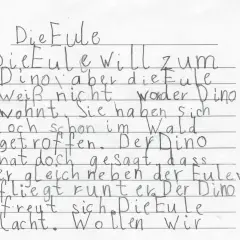 Die Eule
Die Eule will zum
Dino, aber die Eule
weiß nicht wo der Dino
wohnt. Sie haben sich
doch schon im Wald
getroffen. Der Dino
hat doch gesagt dass
er gleich neben der Eule w
fliegt runter. Der Dino
freut sich. Die Eule
lacht. Wollen wir